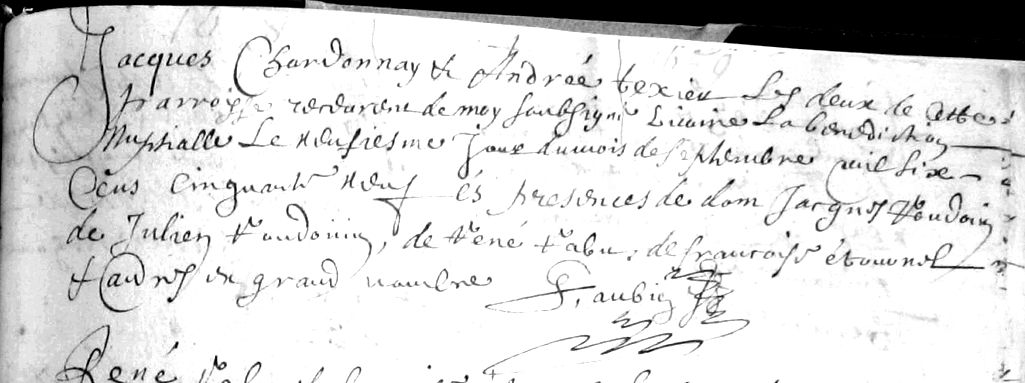 Jacques Chardonnay & Andrée texier Les deux de cette
parroisse receurent de moy soubsigné Vicaire La benediction
Nuptialle Le neufiesme Jour du mois de septembre mil six
Cens cinquante neuf és presences de dom Jacques Baudoin
de Julien Baudouin, de René Rabu, de francoise étournel
& autres en grand nombre F. aubin
René